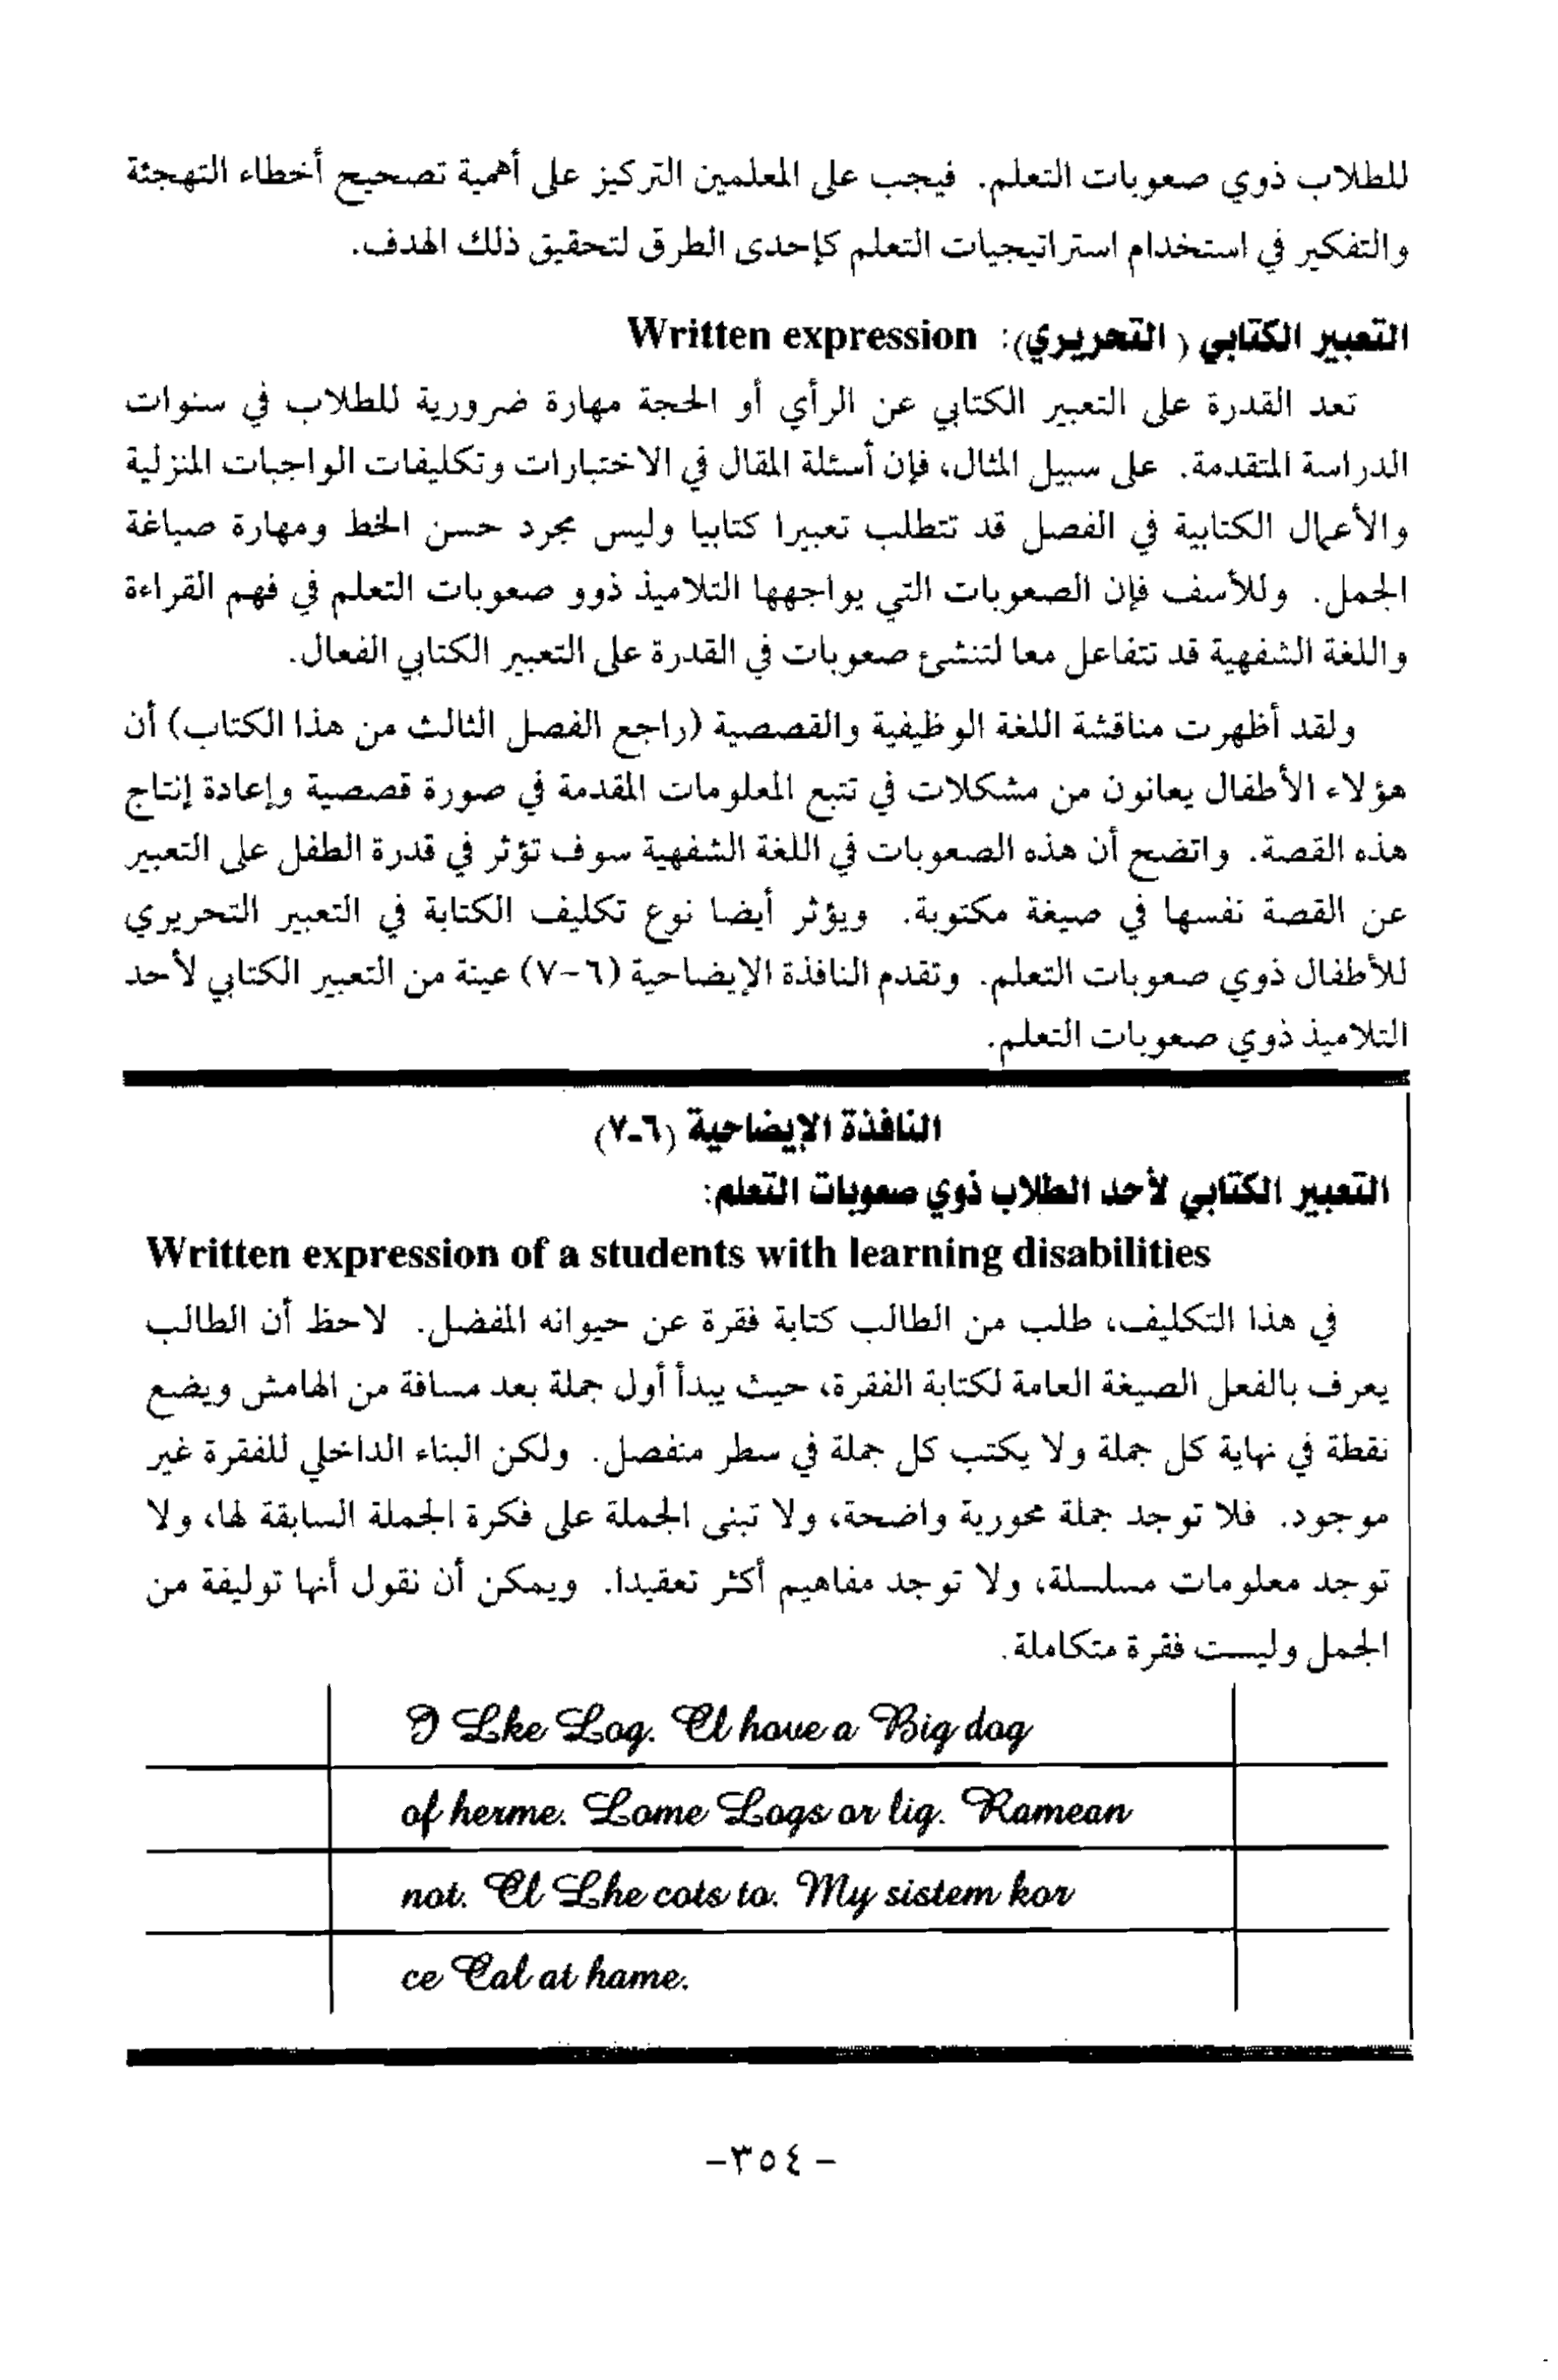 للطلاب ذوي صعوبات التعلم. فيجب على المعلمين التركيز على أهمية تصحيح أخطاء التهجئة
والتفكير في استخدام استراتيجيات التعلم كإحدى الطرق لتحقيق ذلك الهدف.
التعبير الكتابي (التحريري): Written expression
تعد القدرة على التعبير الكتابي عن الرأي أو الحجة مهارة ضرورية للطلاب في سنوات
الدراسة المتقدمة. على سبيل المثال، فإن أسئلة المقال في الاختبارات وتكليفات الواجبات المنزلية
والأعمال الكتابية في الفصل قد تتطلب تعبيرا كتابيا وليس مجرد حسن الخط ومهارة صياغة
الجمل. وللأسف فإن الصعوبات التي يواجهها التلاميذ ذوو صعوبات التعلم في فهم القراءة
واللغة الشفهية قد تتفاعل معا لتنشئ صعوبات في القدرة على التعبير الكتابي الفعال.
ولقد أظهرت مناقشة اللغة الوظيفية والقصصية (راجع الفصل الثالث من هذا الكتاب) أن
هؤلاء الأطفال يعانون من مشكلات في تتبع المعلومات المقدمة في صورة قصصية وإعادة إنتاج
هذه القصة. واتضح أن هذه الصعوبات في اللغة الشفهية سوف تؤثر في قدرة الطفل على التعبير
عن القصة نفسها في صيغة مكتوبة. ويؤثر أيضا نوع تكليف الكتابة في التعبير التحريري
للأطفال ذوي صعوبات التعلم. وتقدم النافذة الإيضاحية (٦-٧) عينة من التعبير الكتابي لأحد
التلاميذ ذوي صعوبات التعلم.
النافذة الإيضاحية (٦-٧)
التعبير الكتابي لأحد الطلاب ذوي صعوبات التعلم:
Written expression of a students with learning disabilities
في هذا التكليف، طلب من الطالب كتابة فقرة عن حيوانه المفضل. لاحظ أن الطالب
يعرف بالفعل الصيغة العامة لكتابة الفقرة، حيث يبدأ أول جملة بعد مسافة من الهامش ويضع
نقطة في نهاية كل جملة ولا يكتب كل جملة في سطر منفصل. ولكن البناء الداخلي للفقرة غير
موجود. فلا توجد جملة محورية واضحة، ولا تبنى الجملة على فكرة الجملة السابقة لها، ولا
توجد معلومات مسلسلة، ولا توجد مفاهيم أكثر تعقيدا. ويمكن أن نقول أنها توليفة من
الجمل وليست فقرة متكاملة.
I Lke Log. El houe a Big dog
of herme. Lome Logs or lig. Ramean
not. El Lhe cots to. My sistem kor
ce Cal at hame.
-٣٥٤-